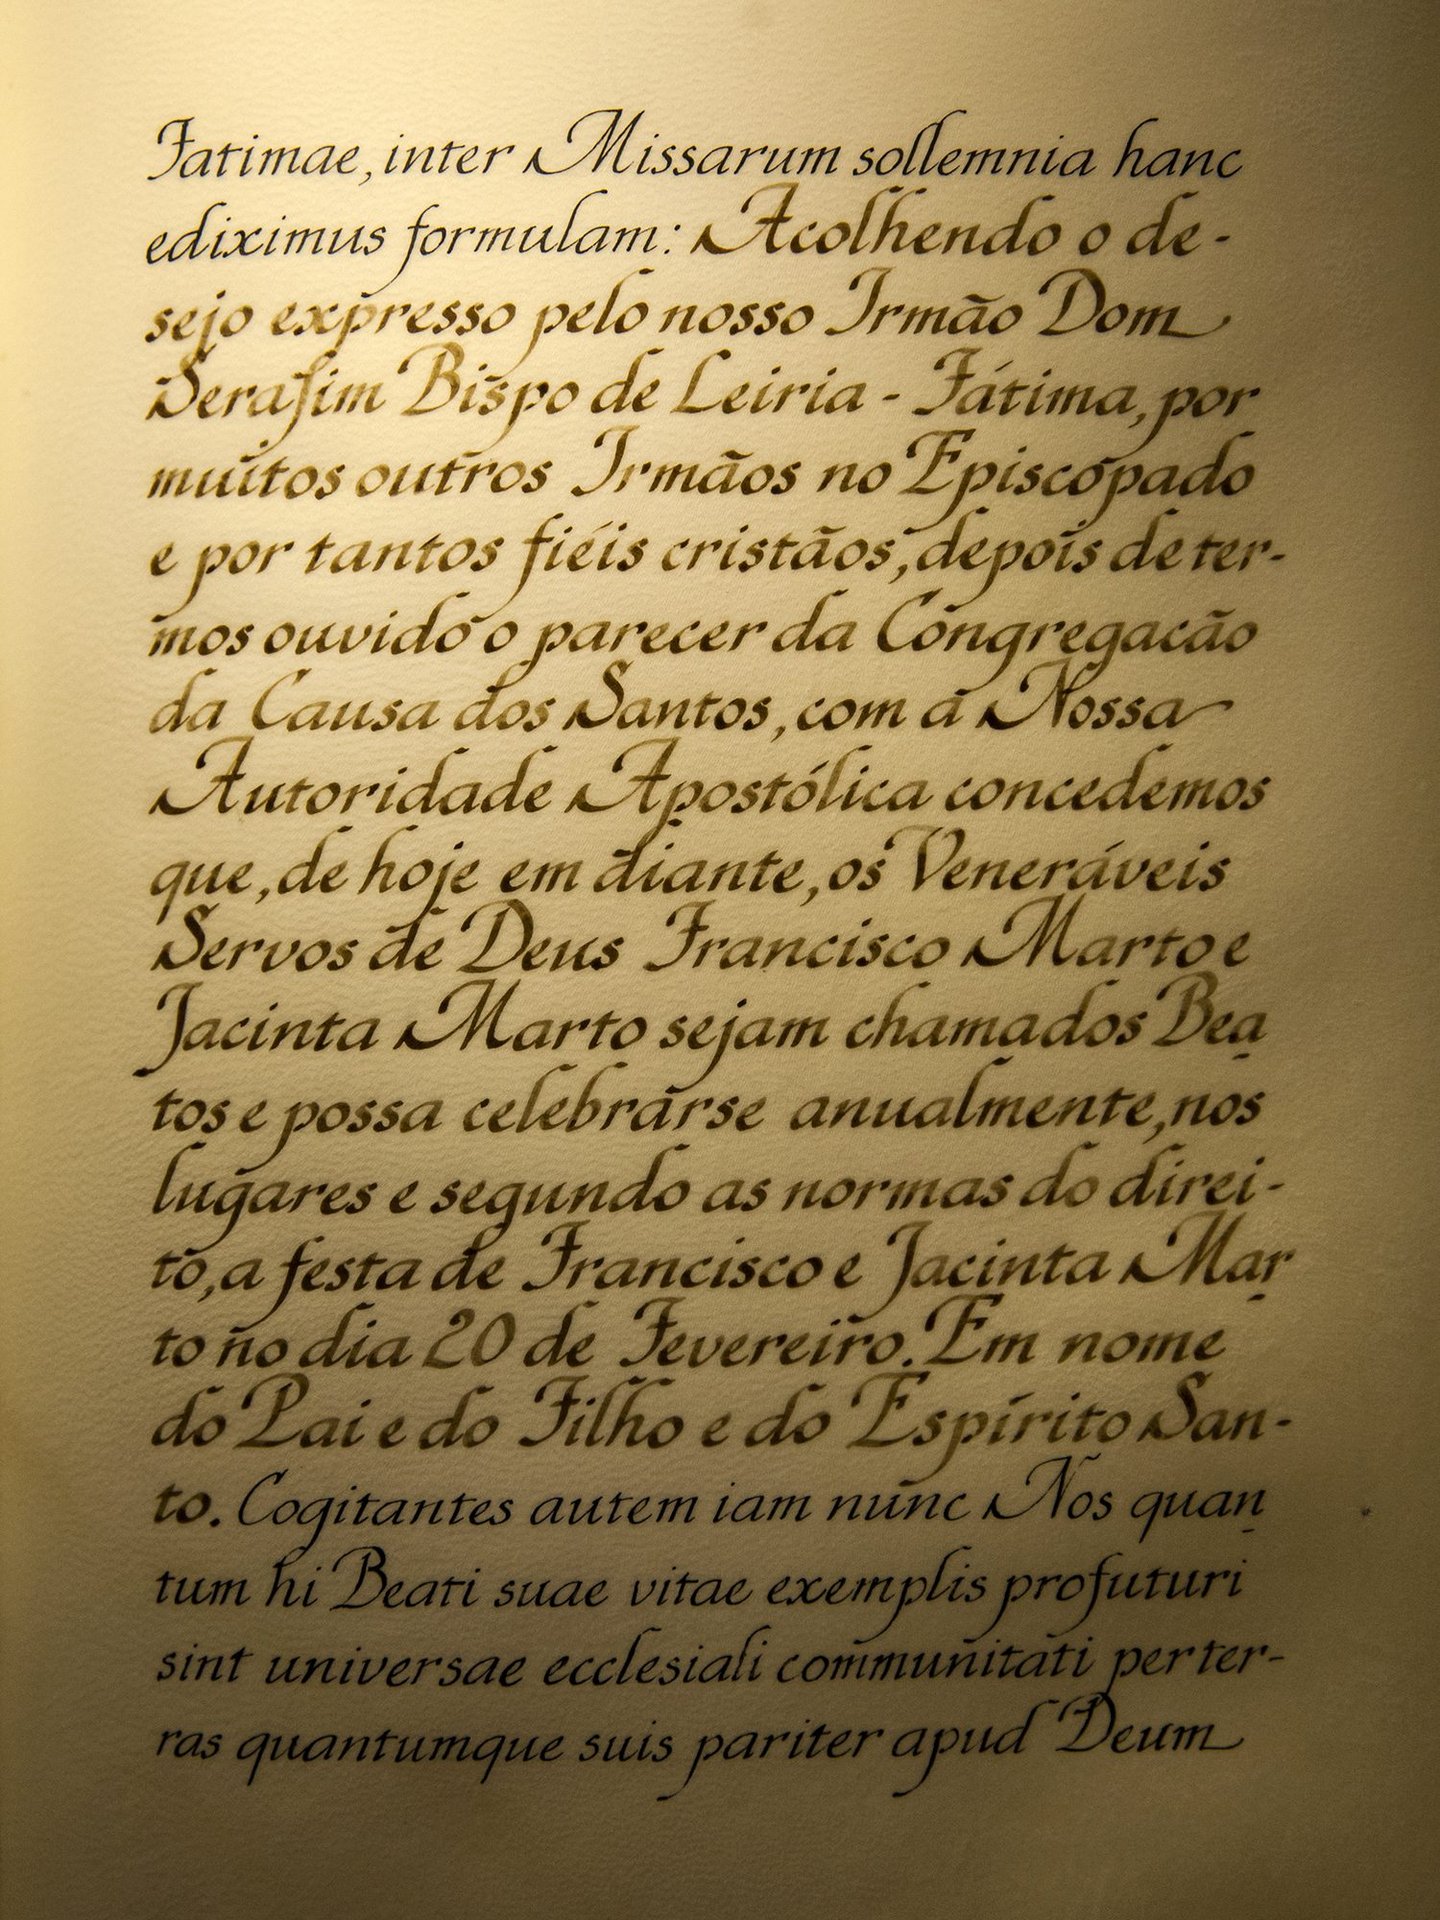 Fatimae, inter Missarum sollemnia hanc
ediximus formulam: Acolhendo o de-
sejo expresso pelo nosso Irmão Dom
Serafim Bispo de Leiria - Fátima, por
muitos outros Irmãos no Episcopado
e por tantos fiéis cristãos, depois de ter-
mos ouvido o parecer da Congregacão
da Causa dos Santos, com a Nossa
Autoridade Apostólica concedemos
que, de hoje em diante, os Veneráveis
Servos de Deus Francisco Marto e
Jacinta Marto sejam chamados Bea
tos e possa celebrarse anualmente, nos
lugares e segundo as normas do direi-
to, a festa de Francisco e Jacinta Mar
to no dia 20 de Fevereiro. Em nome
do Pai e do Filho e do Espírito San-
to. Cogitantes autem iam nunc Nos quan
tum hi Beati suae vitae exemplis profuturi
sint universae ecclesiali communitati per ter-
ras quantumque suis pariter apud Deum